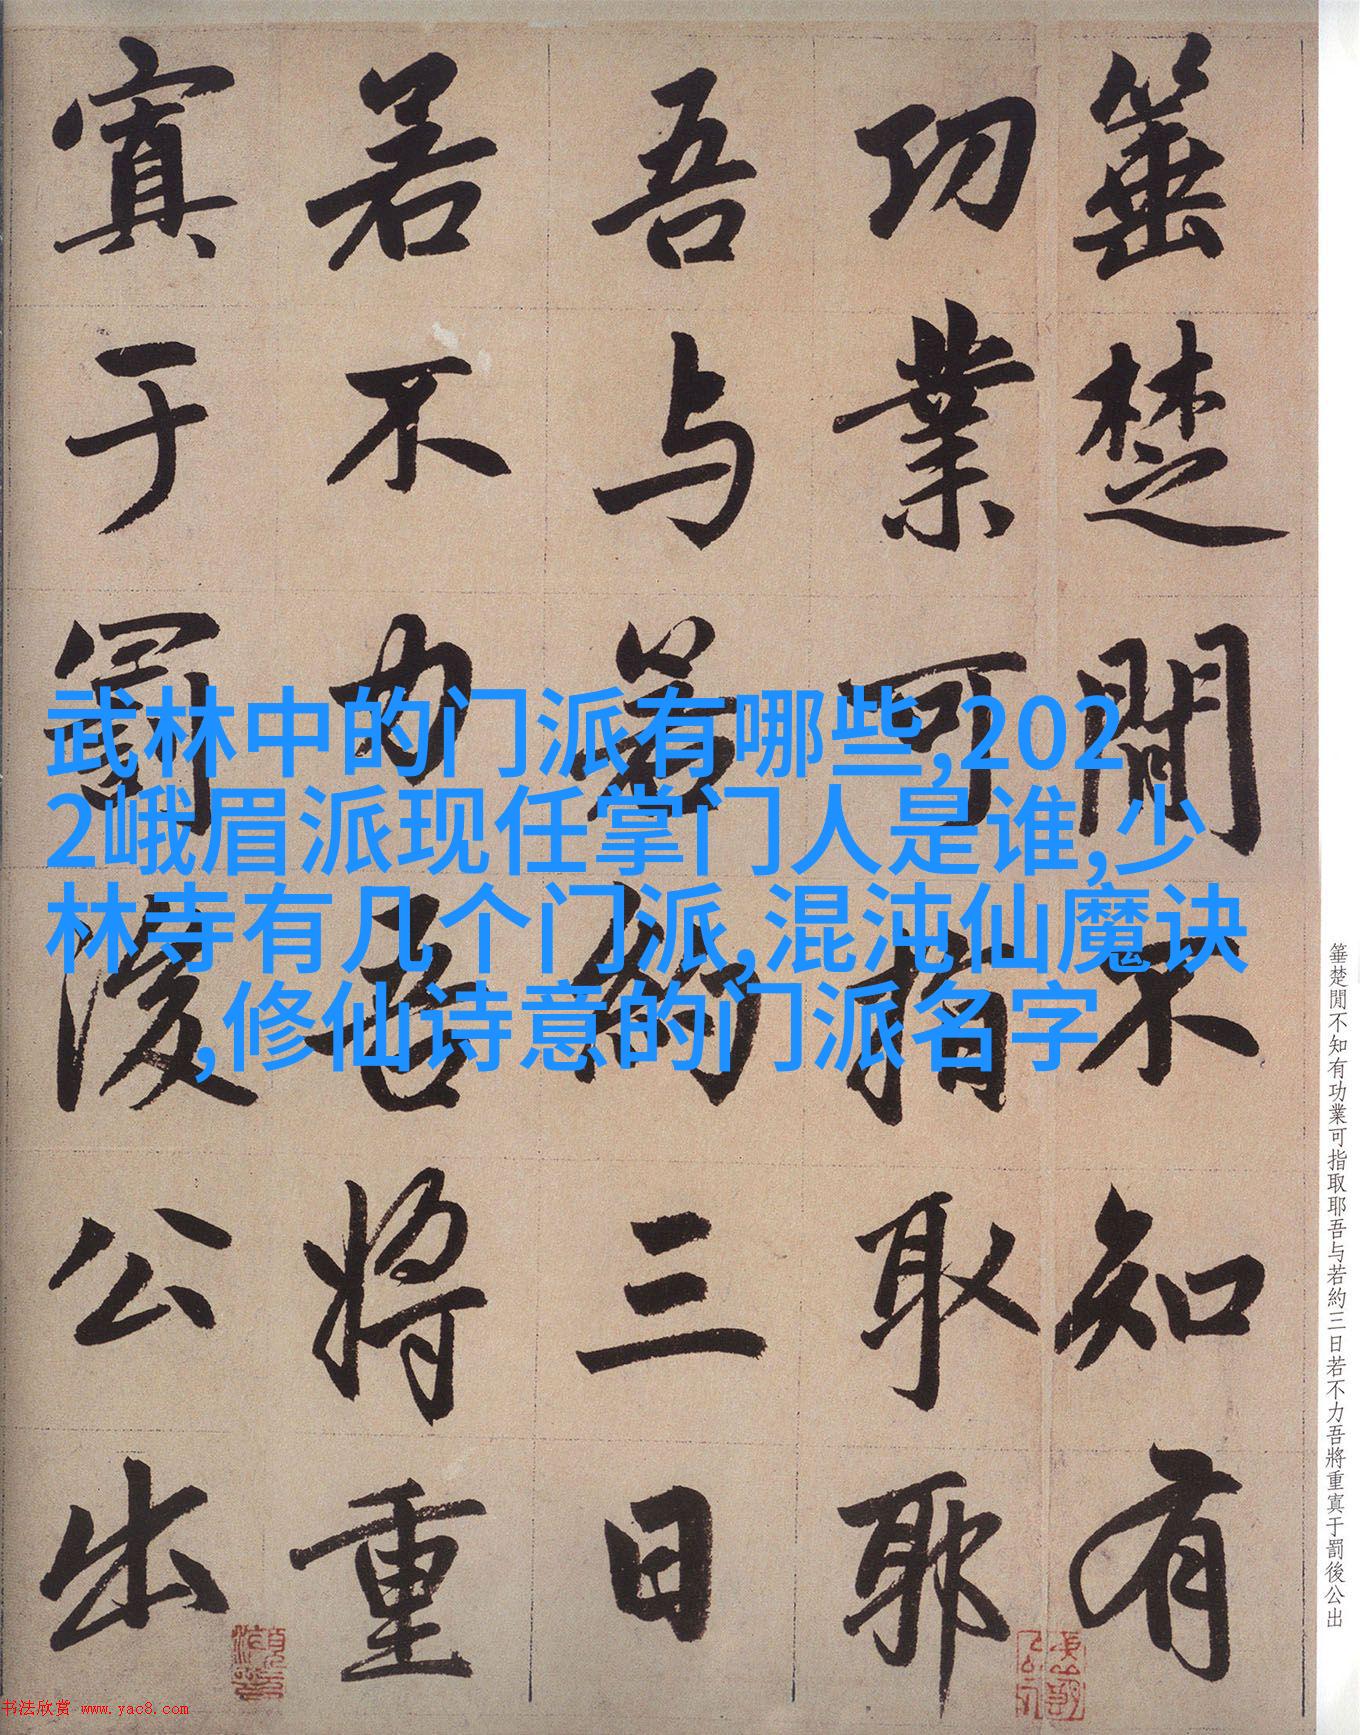 箠楚閒不知有
功業可指取耶
吾与若約三日
若不力吾將重
寘于罰後公出
武林中的门派有哪些,202
2峨眉派现任掌门人是谁,少
林寺有几个门派,混沌仙魔诀
,修仙诗意的门派名字
箠楚閒不知有功業可指取耶吾与若約三日若不力吾將重寘于罰後公出
书法欣赏 www.yac8.com